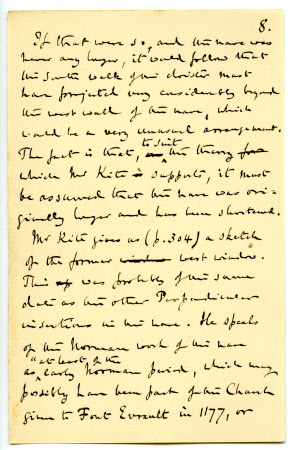 8.
If that were so, and the nave was
never any longer, it would follow that
the south walk of the cloister must
have projected very considerably beyond
the west wall of the nave, which
would be a very unusual arrangement.
The fact is that, to suit the theory
which Mr Kite supports, it must
be assumed that the nave was ori-
ginally longer and has been shortened.
Mr Kite gives us (p. 304) a sketch
of the former west window.
This was probably of the same
date as the other Perpendicular
insertions in the nave. He speaks
of the Norman work of the nave
as "at least of the early Norman period, which may
possibly have been part of the Church
given to Font Evrault in 1177, or